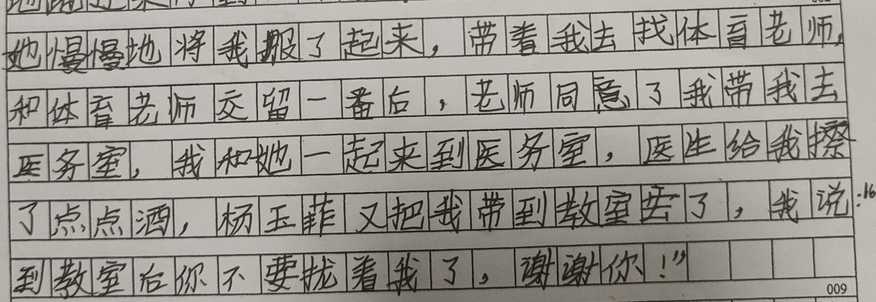 她慢慢地将我服了起来，带着我去找体育老师，
和体育老师交留一番后，老师同意了我带我去
医务室，我和她一起来到医务室，医生给我擦
了点点酒，杨玉菲又把我带到教室去了，我说：
16
到教室后你不要扰着我了，谢谢你！”
009